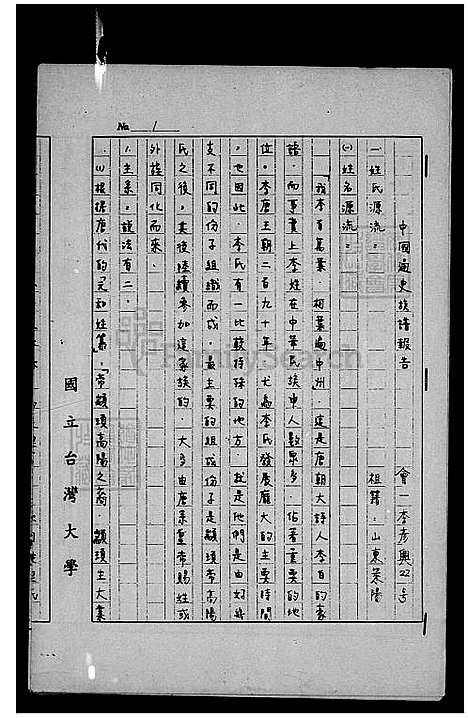 No. 1
中國通史族譜報告
會一李彥興22号
一姓氏源流。
祖籍：山東萊陽
㈠姓名源流。
「我李百萬葉，柯葉遍中州」這是唐朝大詩人李白的家
語，而事實上李姓在中華民族中人數眾多，佔着重要的地
位。李唐王朝二百九十年，尤為李氏發展龐大的主要時間
，也因此，李氏有一比較特殊的地方，就是他們是由好些
支不同的份子組織而成，最主要的組成份子是顓頊帝高陽
氏之後，其後陸續參加這家族的，大多由唐系皇帝賜姓或
外族同化而來。
1.主系。說法有二。
⑴根據唐代的元和姓纂，「帝顓頊高陽之裔，顓頊生大業
國立台灣大學
FamilySearch